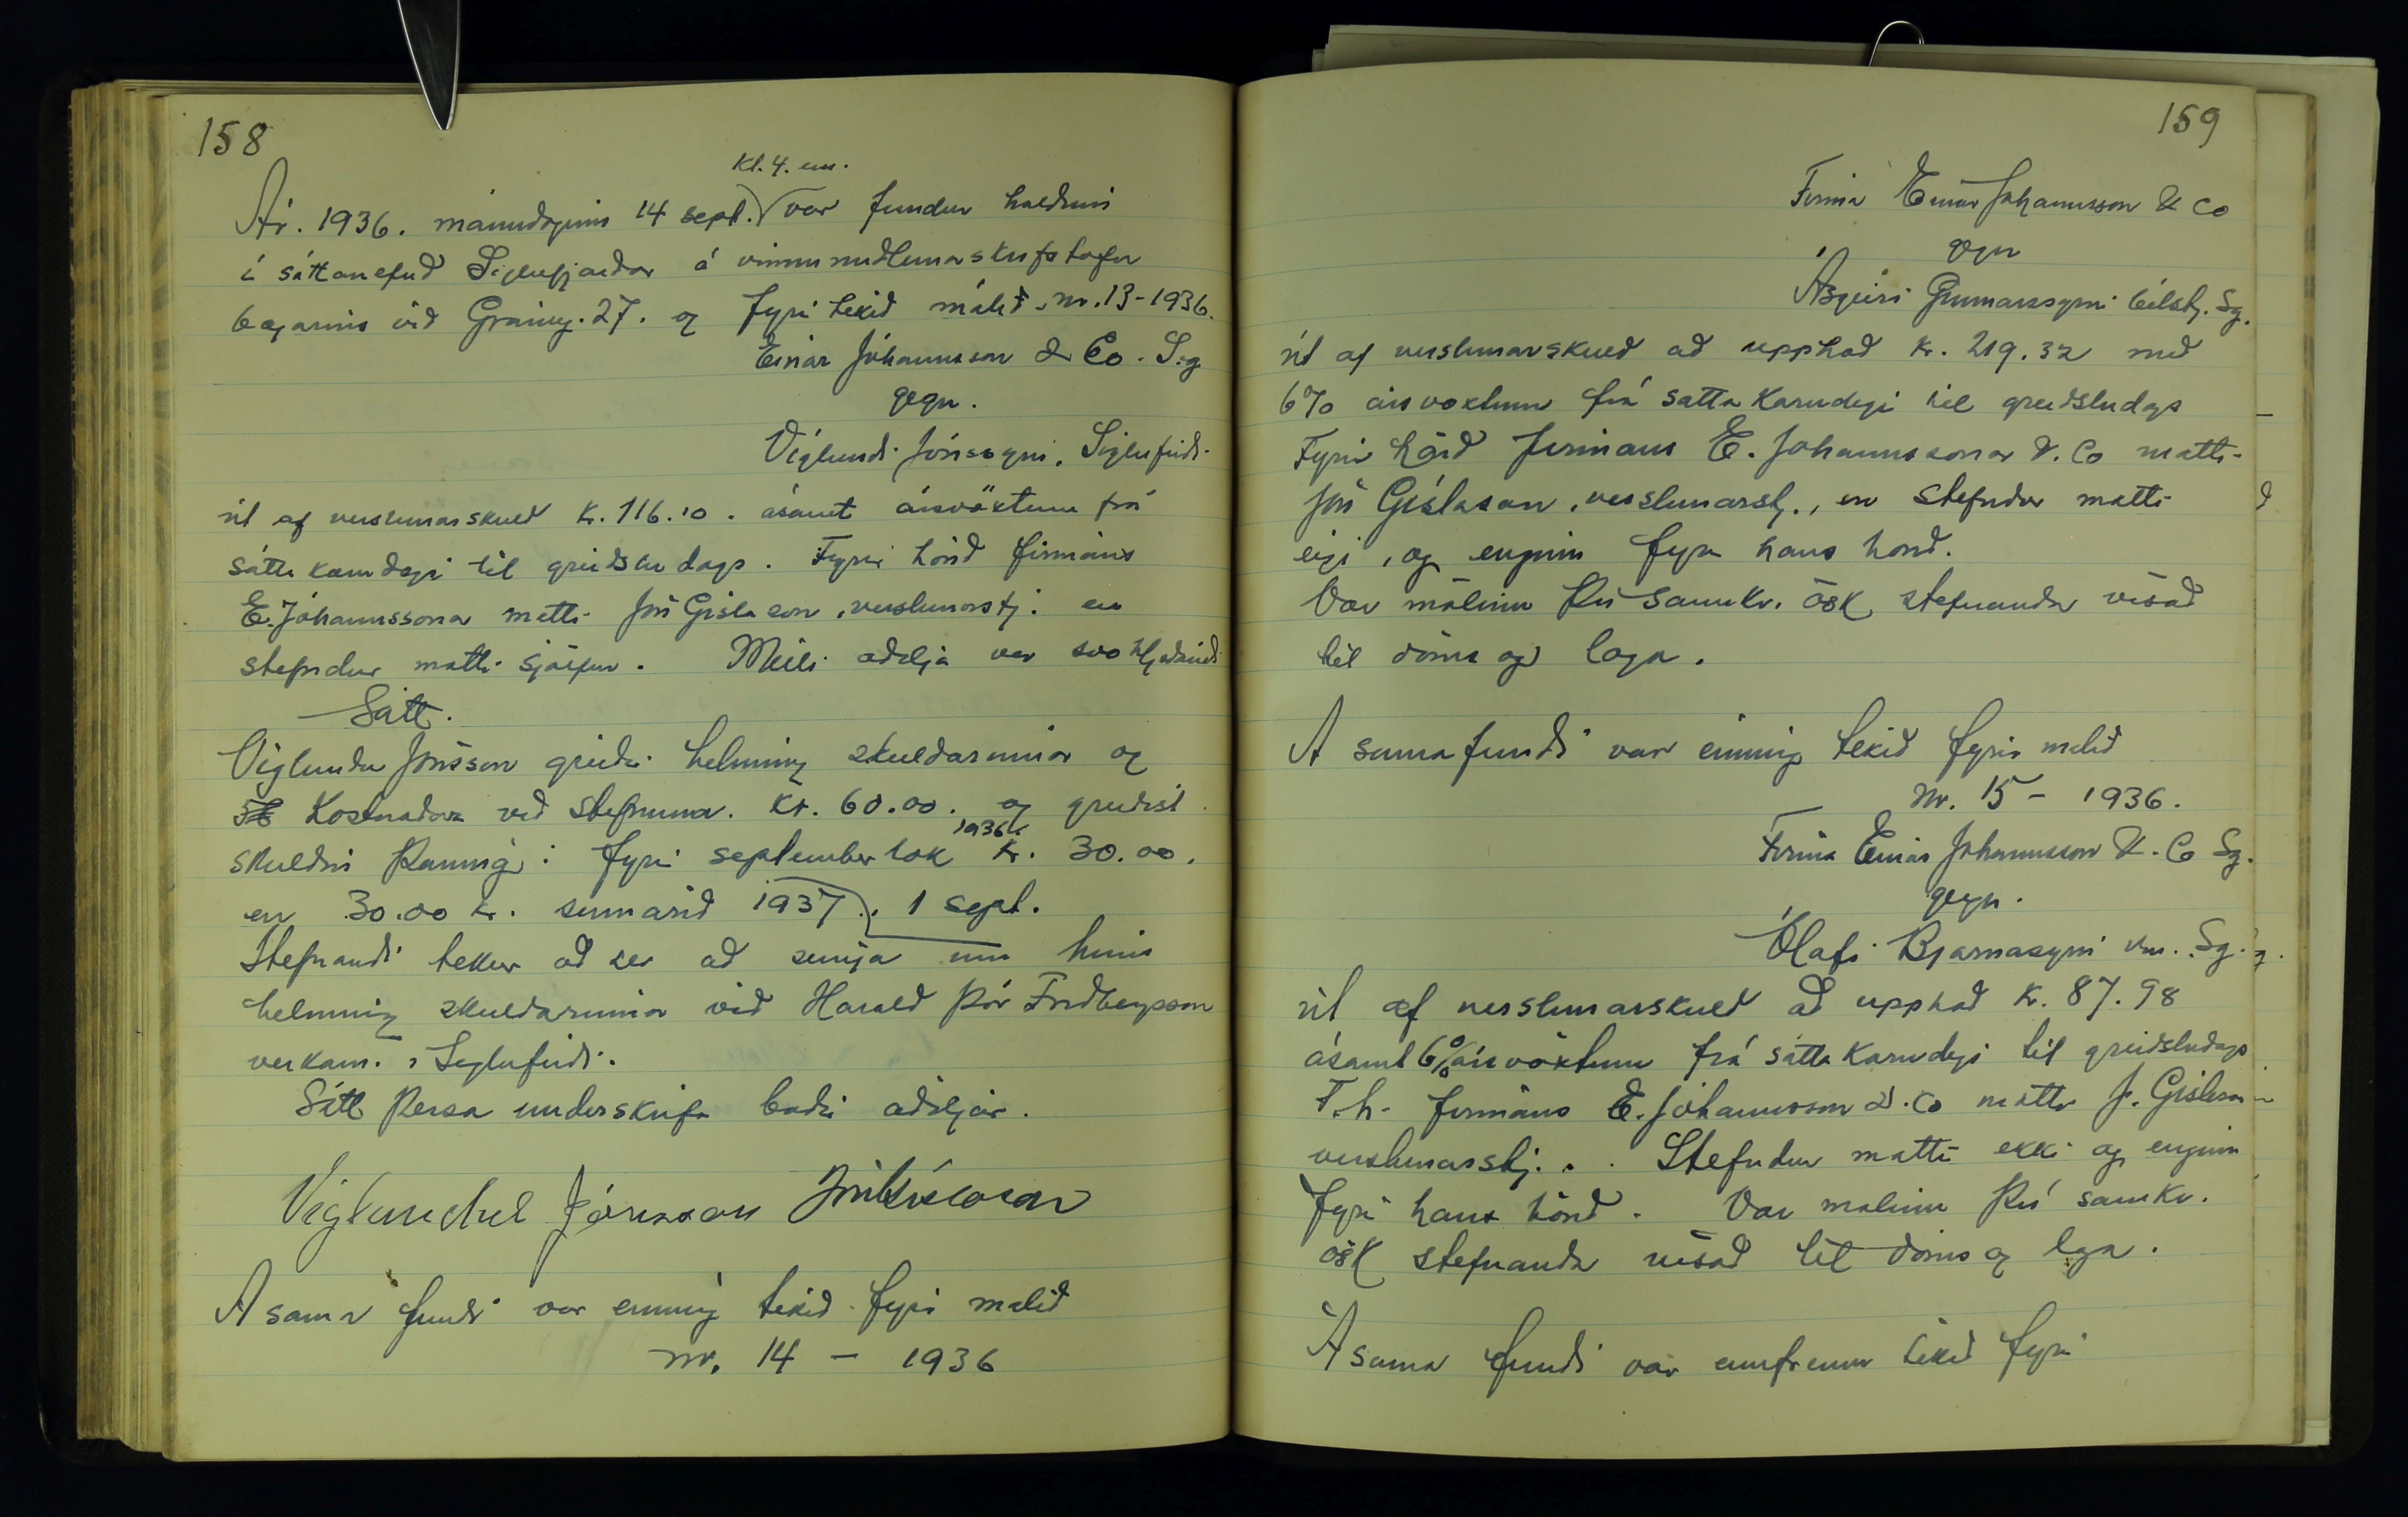 158
Kl. 4. em.
Ár. 1936. mánudaginn 14 sept. var fundur haldinn
í sáttanefnd Siglufjarðar á vinnumiðlunarskrifstofu
bæjarins við Gránug. 27. og fyrir tekið málið nr. 13-1936.
Einar Jóhannsson & Co. Sig
gegn.
Víglundi Jónssyni, Siglufirði.
út af verslunarskuld kr. 116.10. ásamt ársvöxtum frá
sáttakærudegi til greiðsludags. Fyrir hönd firmans
E. Jóhannssonar mætti Jón Gíslason, verslunarstj. en
stefndur mætti sjálfur. Milli aðilja var svo hljóðandi
Sátt.
Víglundur Jónsson greiðir helming skuldarinnar og
kostnaðar við stefnuna. Kr. 60.00. og greiðist
skuldin þannig: fyrir september lok 1936 kr. 30.00.
en 30.00 kr. sumarið 1937. 1 sept.
Stefnandi tekur að ser að semja um hinn
helming skuldarinnar við Harald Þór Friðbergsson
verkam. í Siglufirði.
Sátt þessa underskrifa baðir aðiljar.
Víglundur Jónsson Jón Gíslason
A sama fundi var einnig tekið fyrir malið
nr. 14 - 1936
159
Firma Einar Johannsson & Co
gegn
Ásgeiri Gunnarssyni bílstj. Sg.
út af verslunarskuld að upphæð kr. 219.32 með
6% ársvoxtum frá sattakærudegi til greiðsludags
Fyrir hönd firmans E. Johannssonar & Co mætti
Jón Gíslason, verslunarstj., en stefndur mætti
eigi, og enginn fyrir hans hond.
Var málinu því samkv. ósk stefnanda vísað
til dóms og laga.
A sama fundi var einnig tekið fyrir malið
Nr. 15 - 1936.
Firma Einar Johannsson & Co Sg.
gegn.
Ólafi Bjarnasyni vm. Sg.
út af verslunarskuld að upphað kr. 87.98
ásamt 6% ársvöxtum frá sáttakærudegi til greiðsludags
F.h. firmans E. Jóhannsson & Co mætti J. Gíslason
verslunarstj. . Stefndur mætti ekki og enginn
fyrir hans hönd. Var malinu því samkv.
ósk stefnanda vísað til dóms og laga.
Á sama fundi var ennfremur tekið fyrir